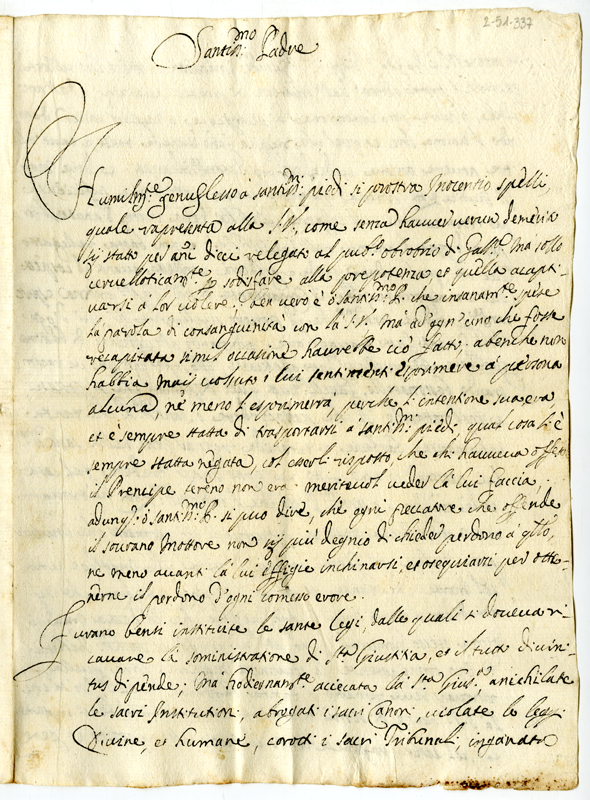 2-51-337
Santiss.mo Padre
Humilm.te genuflesso a santiss.mi piedi si prostra Inocentio spelli,
quale rapresenta alla S.V. come senza hauuer uerun demerito
sij stato per anni dieci relegato al pub.o obrobrio di Gall.a, ma sollo
ceruelloticam.te p sodisfare alla prepotenza et quella acapti-
uarsi á lor uolere; ben uero é ó Santiss.mo P. che insanam.te
la parola di consanguinità con la S.V. má ad ogn' uno che fosse
recapitata simil occasione haurebbe ció fatto, abenche non
habbia mai uoluto i lui sentimenti esprimere á persona
alcuna, né meno l'esprimerrá, perche l'intentione sua era
et é sempre statta di trasportarsi á santiss.mi piedi, qual cosa li é
sempre statta negata, col risposto, che chi haueua offeso
il Prencipe tereno non era meriteuol ueder la lui faccia
adunq. ó santiss.mo P. si puo dire, che ogni peccatore che offende
il sourano Mottore non sij piú degnio di chieder perdono á q.llo,
ne meno auanti la lui effigie inchinarsi, et osequiarsi per otte-
nerne il perdono d'ogni comesso erore.
Furano bensi instituite le sante legi, dalle quali si doueua ri-
cauare la sominstratione di S.ta Giustitia, et il tutto diuini-
tus dipende; Má hodiernam.te aciecata la S.ta Gius.a, anichilate
le sacri Institutioni, abrogati i sacri Canoni, uiolate le legi
Diuine, et humane, coroti i sacri Tribunali, inganato